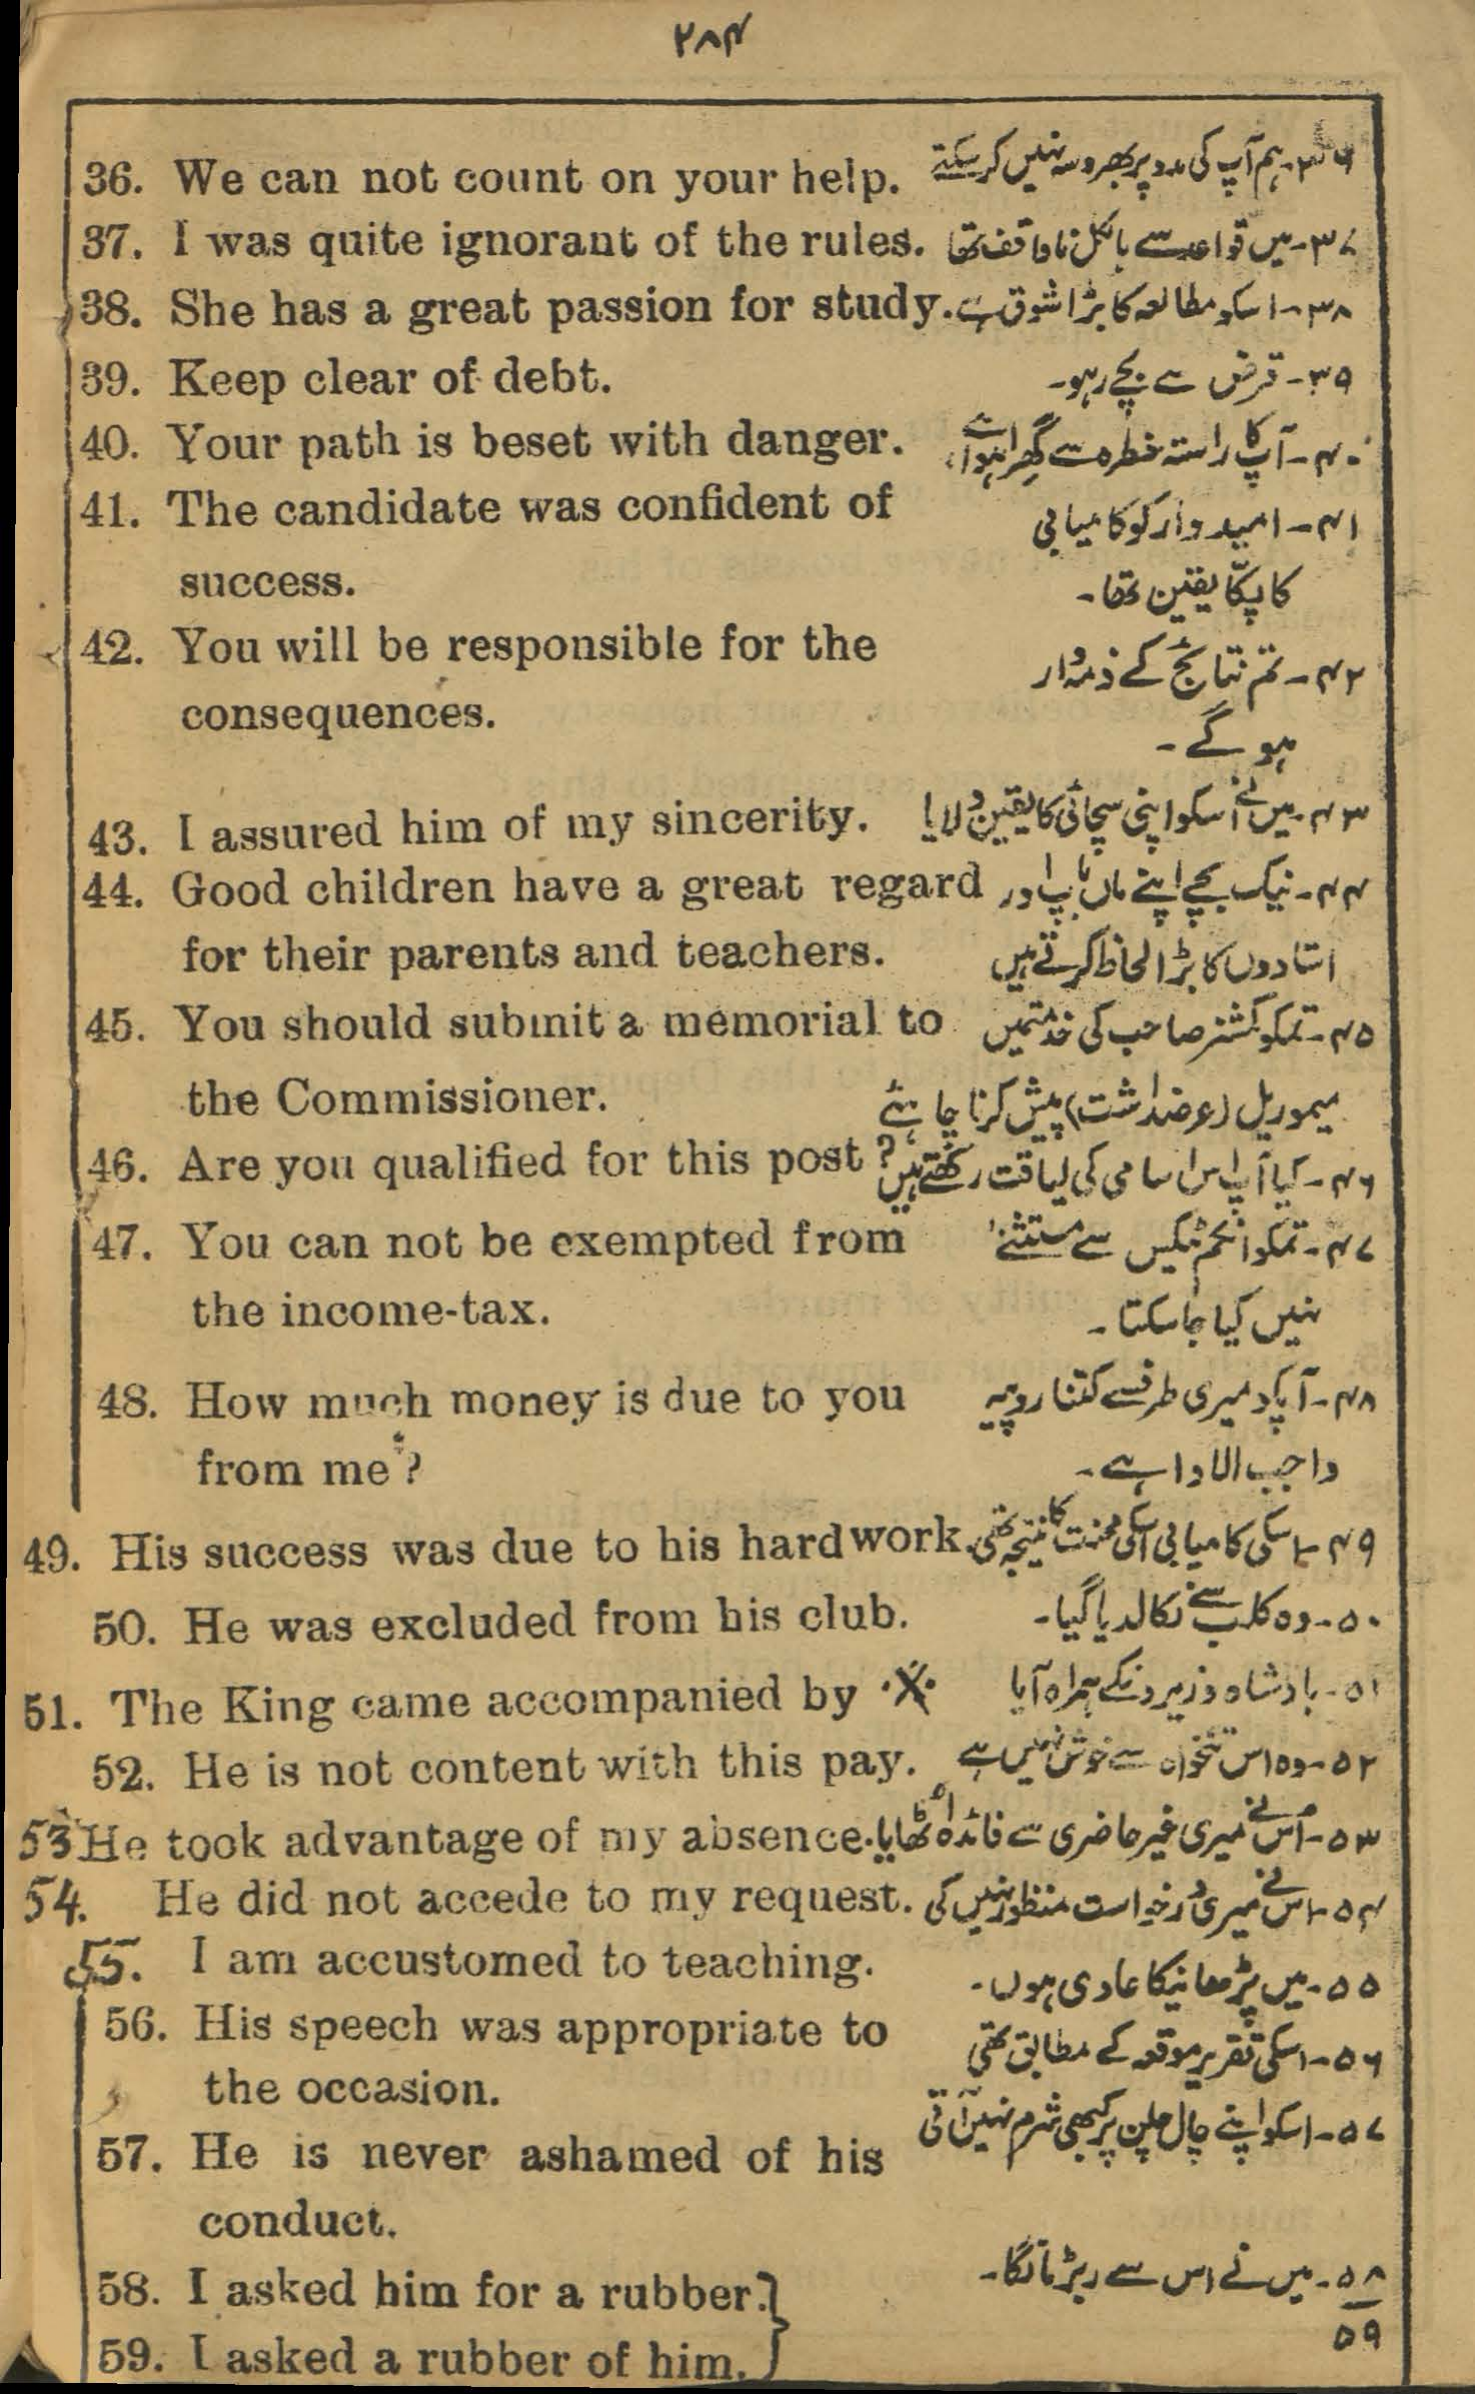 ۲۸۴
36. We can not count on your help. ۳۶- ہم آپ کی مدد پر بھروسہ نہیں کر سکتے
37. I was quite ignorant of the rules. ۳۷- میں قواعد سے بالکل ناواقف تھا
38. She has a great passion for study. ۳۸- اسکو مطالعہ کا بڑا شوق ہے
39. Keep clear of debt. ۳۹- قرض سے بچے رہو-
40. Your path is beset with danger. ۴۰- آپ کا راستہ خطرہ سے گھرا ہوا ہے
41. The candidate was confident of ۴۱- امیدوار کو کامیابی
success. کا پکّا یقین تھا-
42. You will be responsible for the ۴۲- تم نتائج کے ذمہ وار
consequences. ہو گے-
43. I assured him of my sincerity. ۴۳- میں نے اُسکو اپنی سچائی کا یقین دلایا
44. Good children have a great regard ۴۴- نیک بچے اپنے ماں باپ اور
for their parents and teachers. استادوں کا بڑا لحاظ کرتے ہیں
45. You should submit a memorial to ۴۵- تمکو کمشنر صاحب کی خدمتمیں
the Commissioner. میموریل (عرضداشت) پیش کرنا چاہئے
46. Are you qualified for this post? ۴۶- کیا آپ اس اسامی کی لیاقت رکھتے ہیں
47. You can not be exempted from ۴۷- تمکو انکم ٹیکس سے مستثنےٰ
the income-tax. نہیں کیا جا سکتا-
48. How much money is due to you ۴۸- آپکو میری طرفسے کتنا روپیہ
from me? واجب الادا ہے-
49. His success was due to his hard work. ۴۹- اسکی کامیابی اسکی محنت کا نتیجہ تھی
50. He was excluded from his club. ۵۰- وہ کلب سے نکالدیا گیا-
51. The King came accompanied by ۵۱- بادشاہ وزیرونکے ہمراہ آیا
52. He is not content with this pay. ۵۲- وہ اس تنخواہ سے خوش نہیں ہے
53 He took advantage of my absence. ۵۳- اُس نے میری غیر حاضری سے فائدہ اُٹھایا
54. He did not accede to my request. ۵۴- اس نے میری درخواست منظور نہیں کی
55. I am accustomed to teaching. ۵۵- میں پڑھانیکا عادی ہوں-
56. His speech was appropriate to ۵۶- اسکی تقریر موقعہ کے مطابق تھی
the occasion.
57. He is never ashamed of his ۵۷- اسکو اپنے چال چلن پر کبھی شرم نہیں آتی
conduct.
58. I asked him for a rubber. ۵۸- میں نے اس سے ربڑ مانگا-
59. I asked a rubber of him. ۵۹